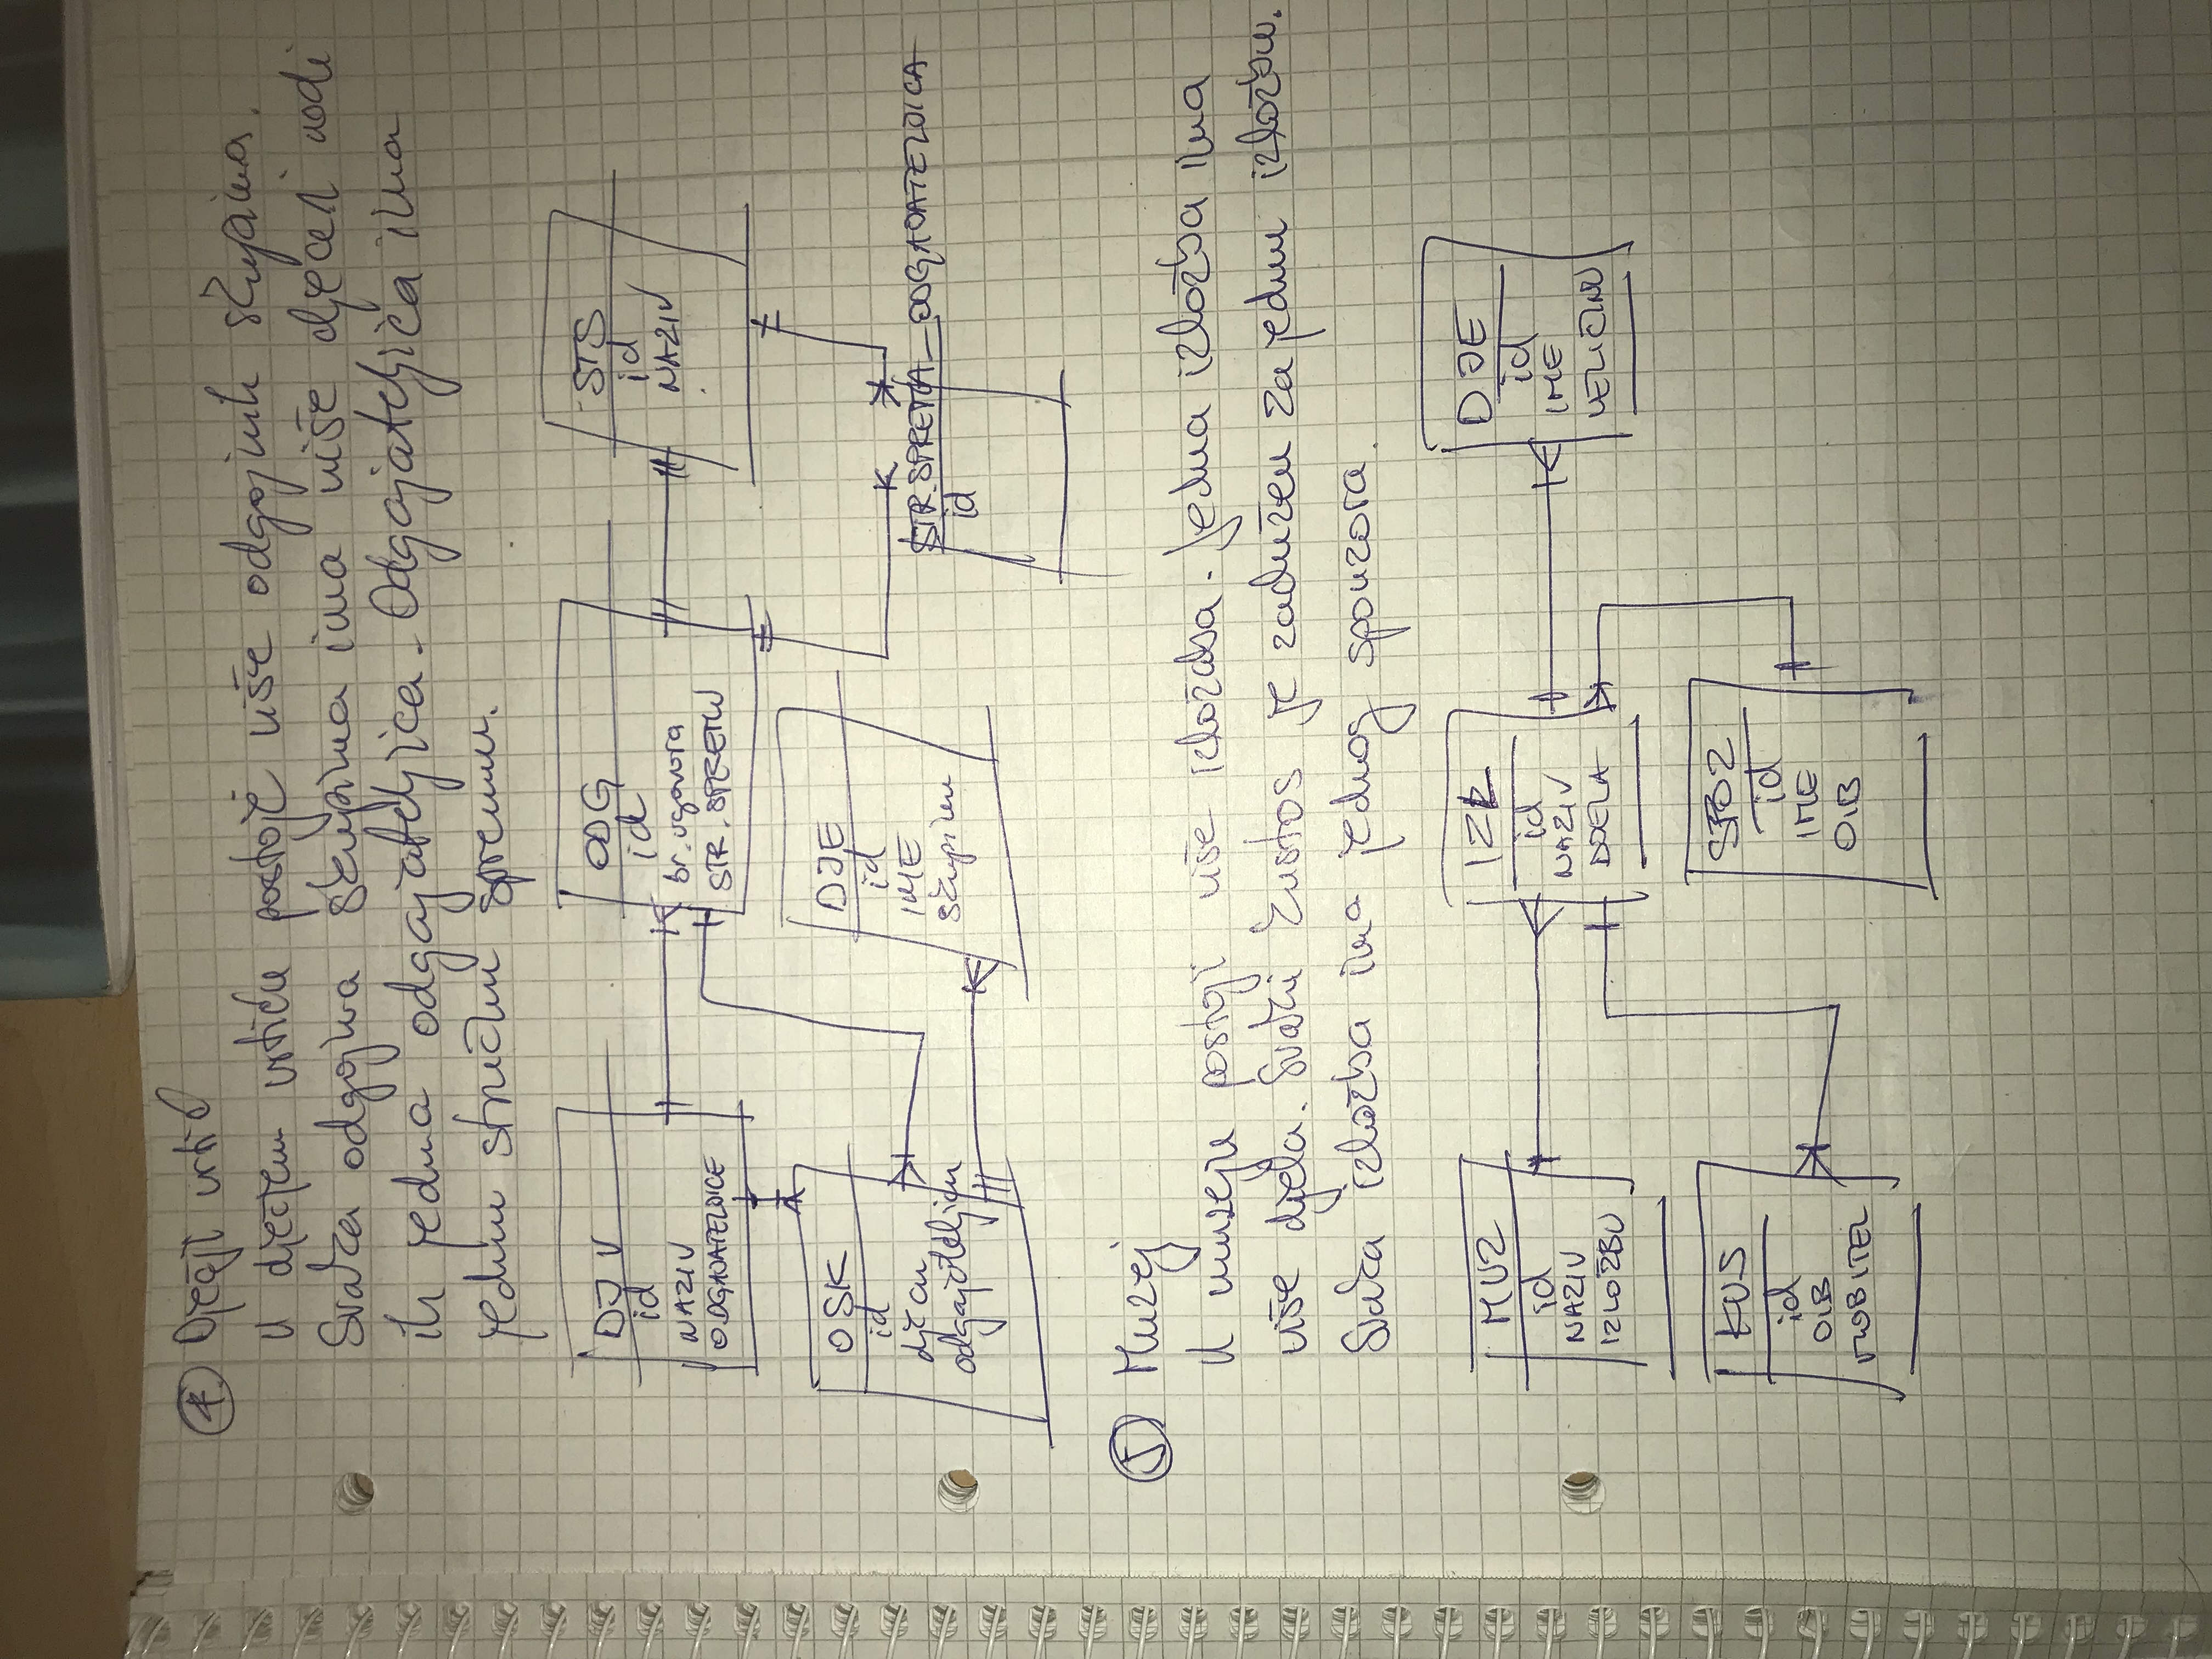 4. Dječji vrtić
U dječjem vrtiću postoje više odgojnih skupina.
Svaka odgojna skupina ima više djece i vodi
ih jedna odgajateljica. Odgajateljica ima
jednu stručnu spremu.
DJV
id
NAZIV
ODGAJATELJICE
ODG
id
br. ugovora
STR. SPREMU
STS
id
NAZIV
OSK
id
djecu
odgajateljicu
DJE
id
IME
skupinu
STR.SPREMA_ODGAJATELJICA
id
5. Muzej
U muzeju postoji više izložaba. Jedna izložba ima
više djela. Svaki kustos je zadužen za jednu izložbu.
Svaka izložba ima jednog sponzora.
MUZ
id
NAZIV
IZLOŽBU
IZL
id
NAZIV
DJELA
DJE
id
IME
VELIČINU
KUS
id
OIB
MOBITEL
id
IME
OIB